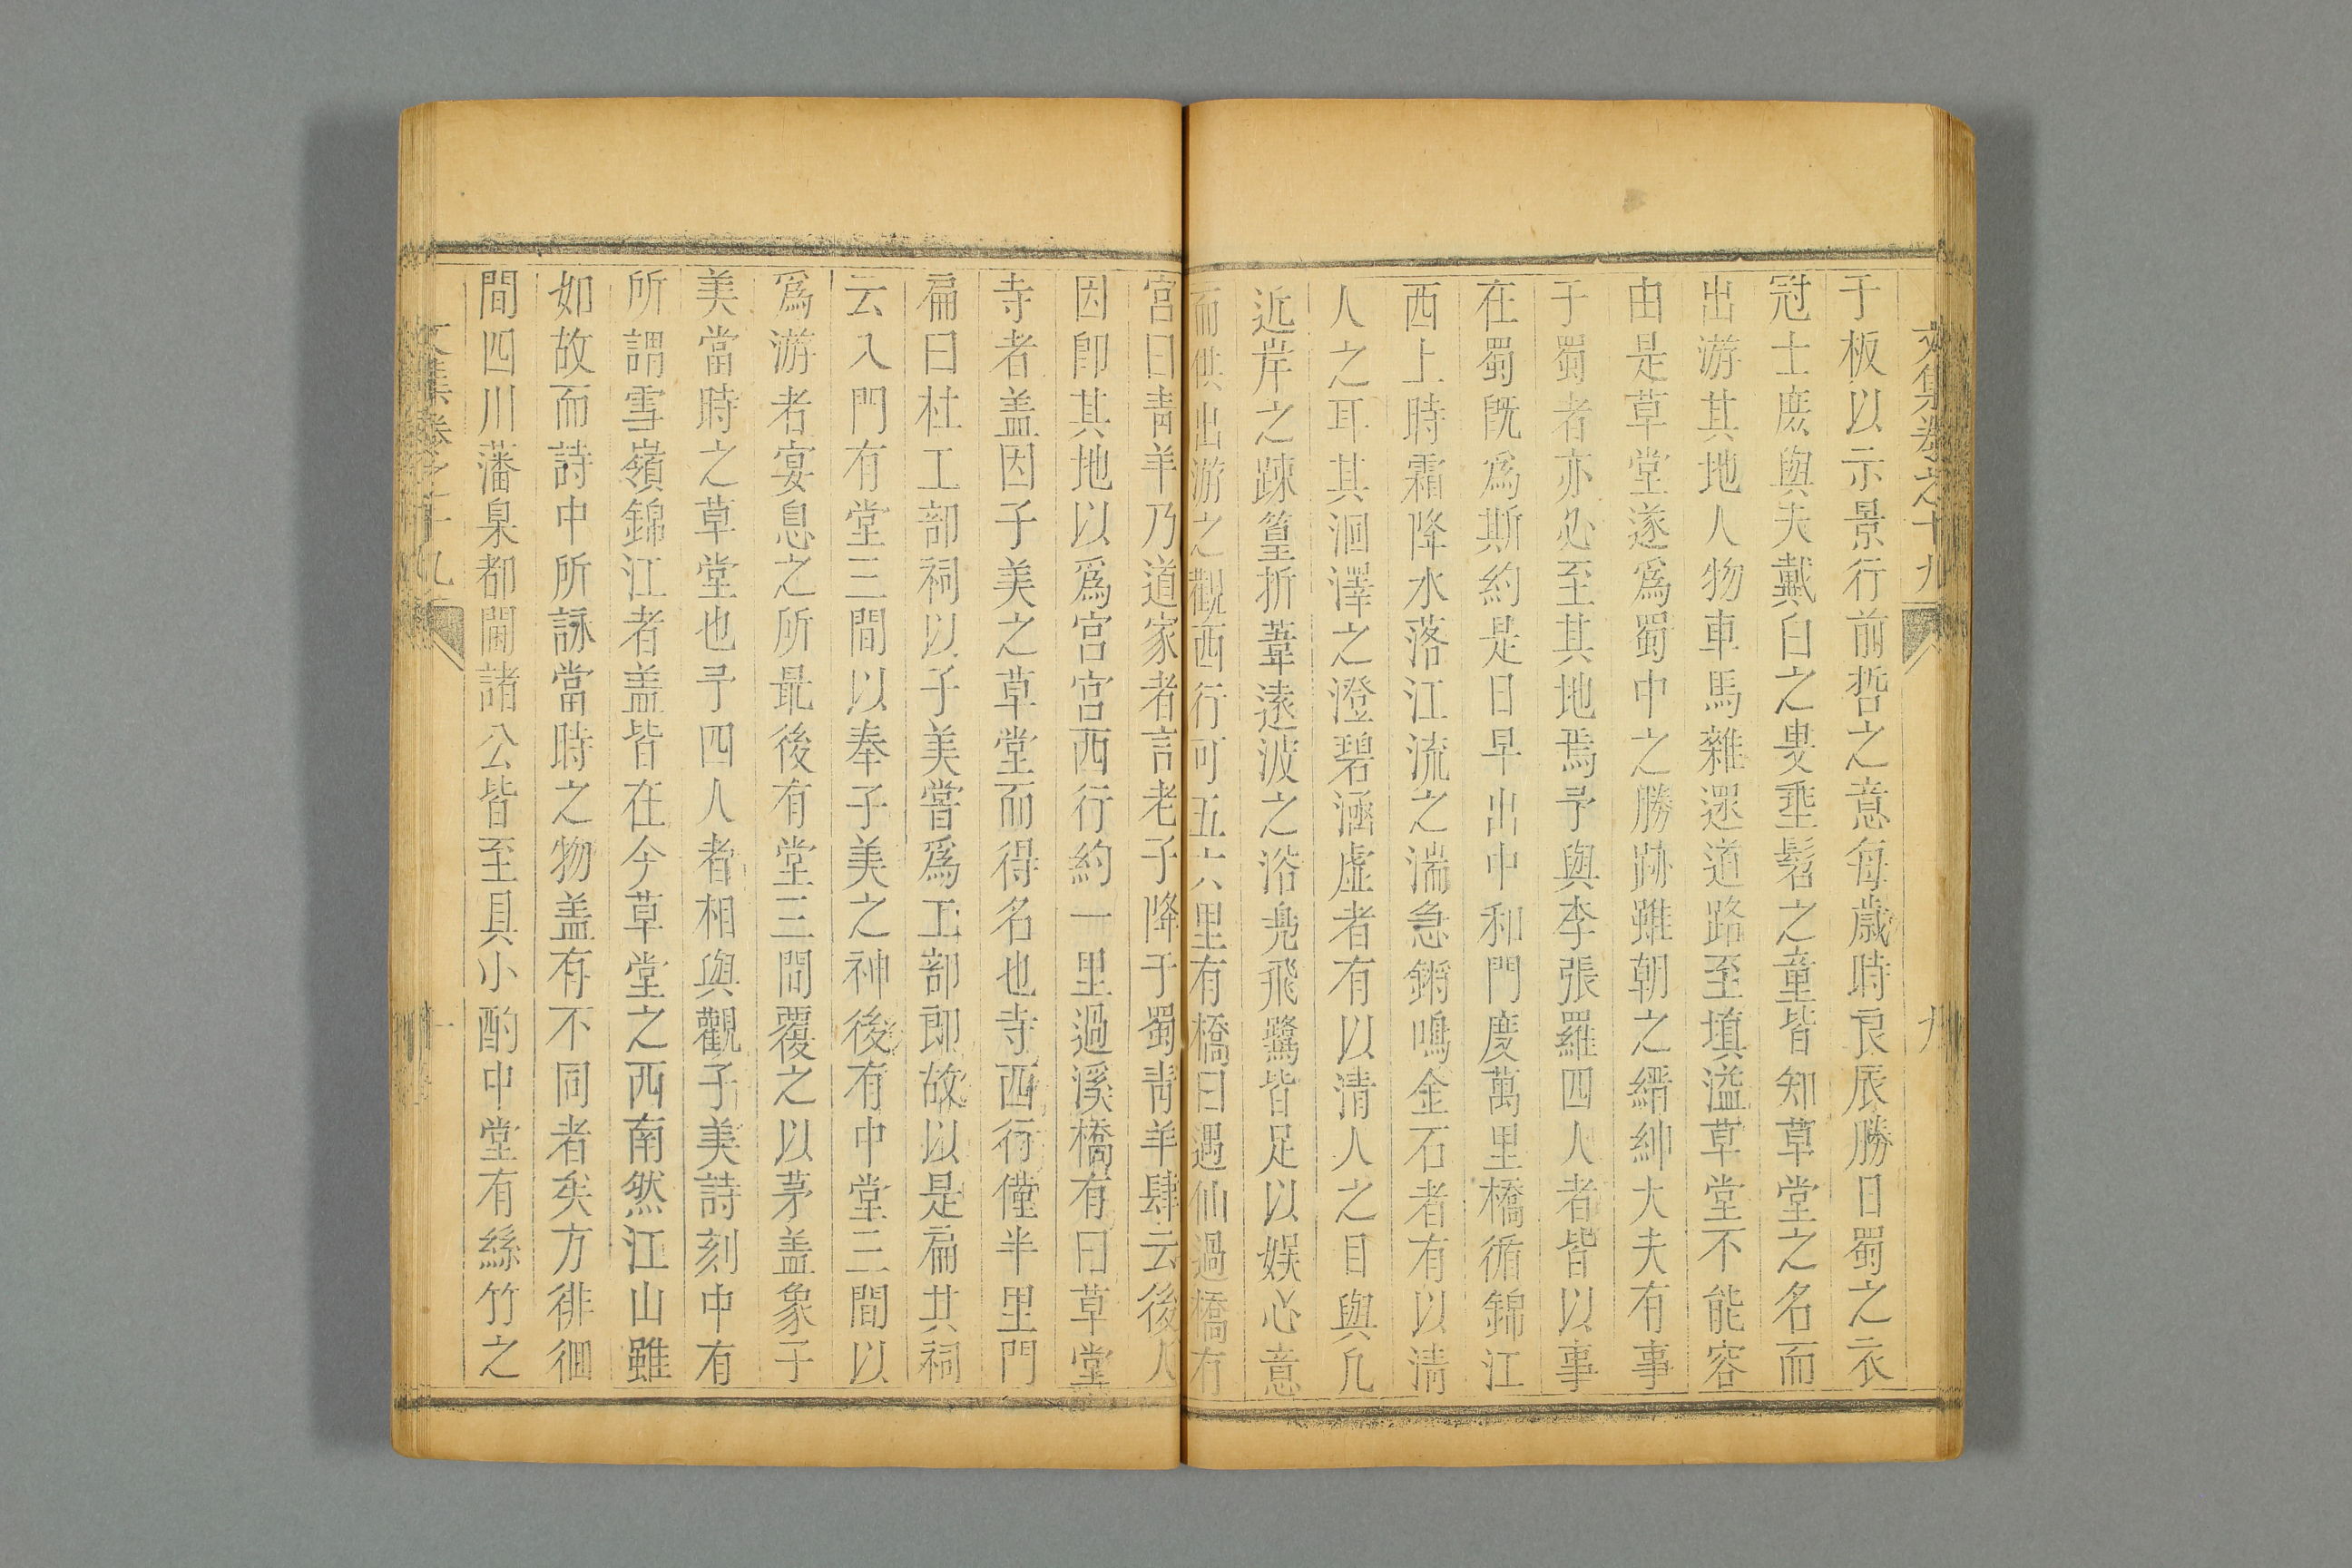 文集卷之十九
九
于板以示景行前哲之意每歳時良辰勝日蜀之衣
冠士庶與夫戴白之叟垂髫之童皆知草堂之名而
出游其地人物車馬雜遝道路至填溢草堂不能容
由是草堂遂爲蜀中之勝跡雖朝之縉紳大夫有事
于蜀者亦必至其地焉予與李張羅四人者皆以事
在蜀旣爲斯約是日早出中和門度萬里橋循錦江
西上時霜降水落江流之湍急鏘鳴金石者有以清
人之耳其洄澤之澄碧涵虛者有以清人之目與凡
近岸之踈篁折葦遠波之浴鳬飛鷺皆足以娱心意
而供出游之觀西行可五六里有橋曰遇仙過橋有
宮曰青羊乃道家者言老子降于蜀青羊肆云後人
因卽其地以爲宮宮西行約一里過溪橋有曰草堂
寺者盖因子美之草堂而得名也寺西行僅半里門
扁曰杜工部祠以子美嘗爲工部郎故以是扁其祠
云入門有堂三間以奉子美之神後有中堂三間以
爲游者宴息之所最後有堂三間覆之以茅盖象子
美當時之草堂也予四人者相與觀子美詩刻中有
所謂雪嶺錦江者盖皆在今草堂之西南然江山雖
如故而詩中所詠當時之物盖有不同者矣方徘徊
間四川藩臬都閫諸公皆至具小酌中堂有絲竹之
文集卷之十九